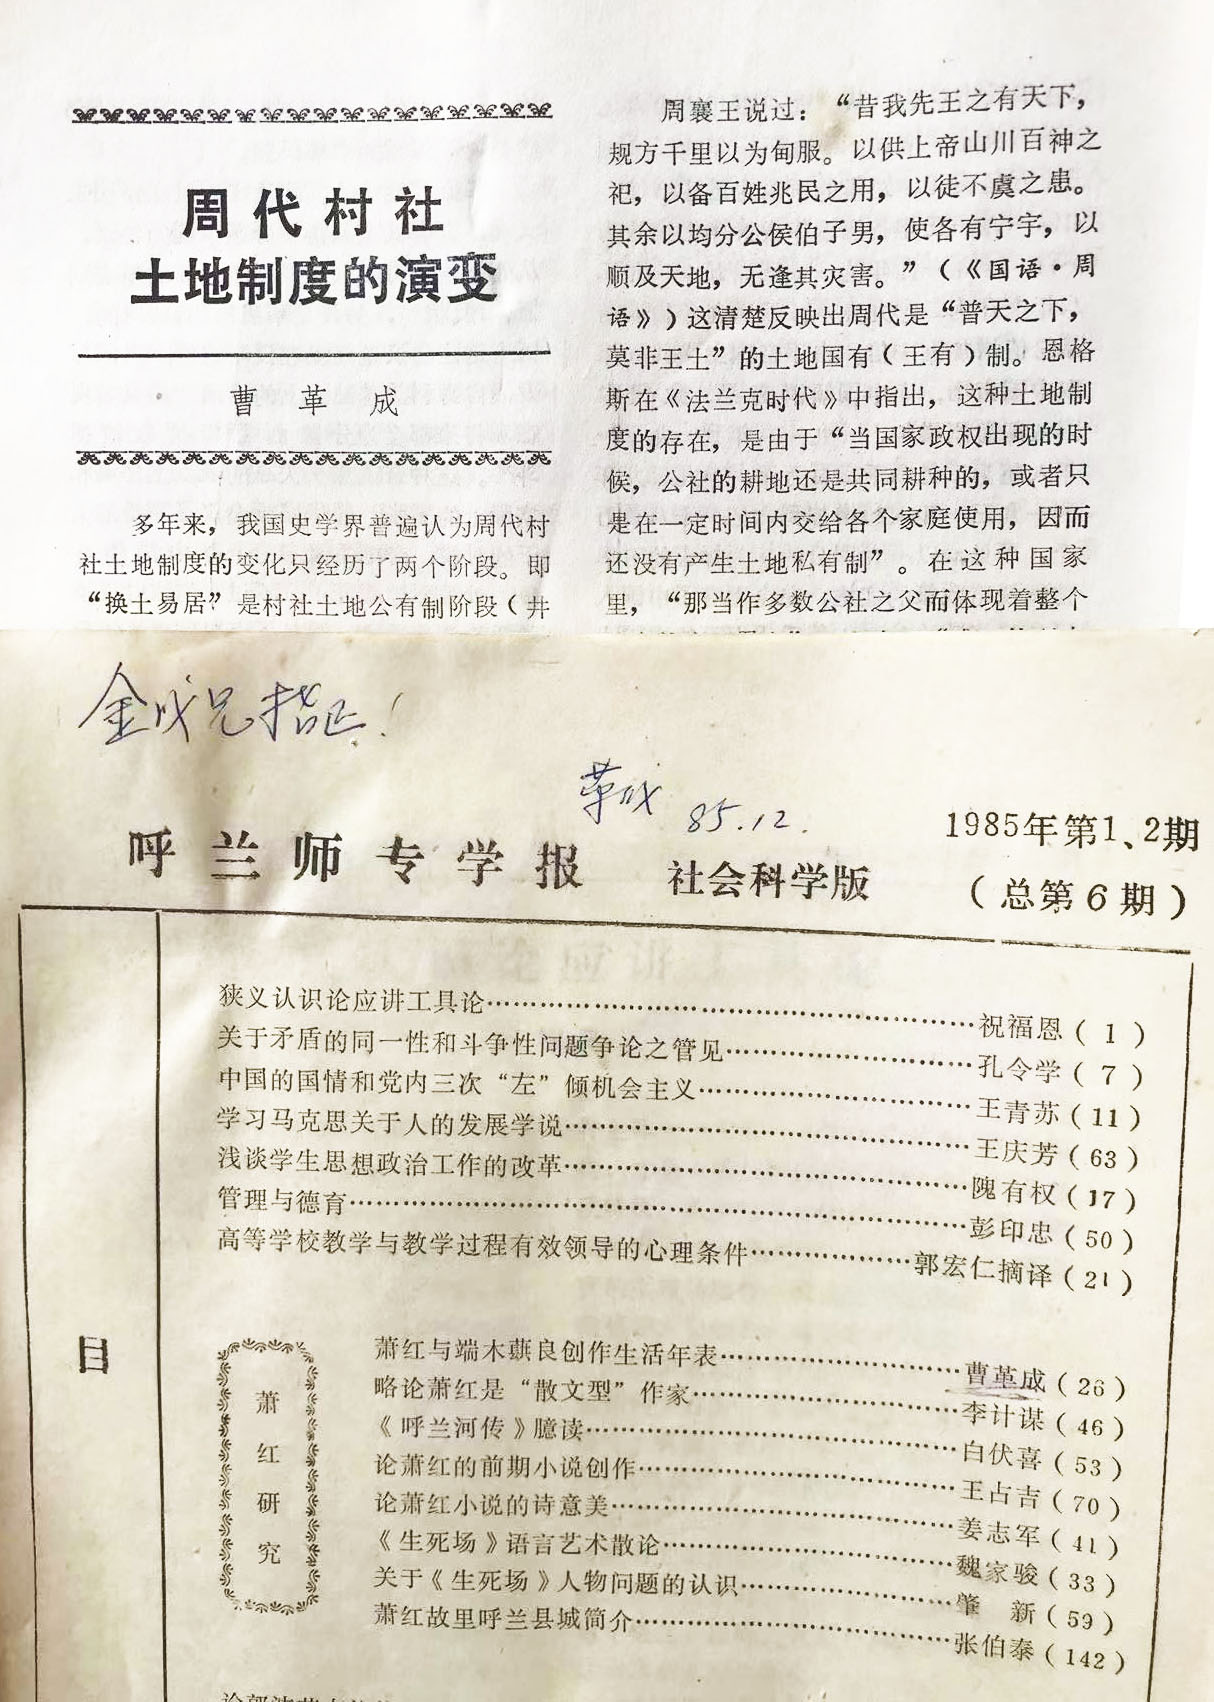 周代村社
土地制度的演变
曹革成
多年来，我国史学界普遍认为周代村
社土地制度的变化只经历了两个阶段。即
“换土易居”是村社土地公有制阶段（井
周襄王说过：“昔我先王之有天下，
规方千里以为甸服。以供上帝山川百神之
祀，以备百姓兆民之用，以徒不虞之患。
其余以均分公侯伯子男，使各有宁宇，以
顺及天地，无逢其灾害。”（《国语·周
语》）这清楚反映出周代是“普天之下，
莫非王土”的土地国有（王有）制。恩格
斯在《法兰克时代》中指出，这种土地制
度的存在，是由于“当国家政权出现的时
候，公社的耕地还是共同耕种的，或者只
是在一定时间内交给各个家庭使用，因而
还没有产生土地私有制”。在这种国家
里，“那当作多数公社之父而体现着整个
金成兄指正！
革成 85.12.
呼兰师专学报 社会科学版
1985年第1、2期
（总第6期）
目
狭义认识论应讲工具论……祝福恩（1）
关于矛盾的同一性和斗争性问题争论之管见……孔令学（7）
中国的国情和党内三次“左”倾机会主义……王青苏（11）
学习马克思关于人的发展学说……王庆芳（63）
浅谈学生思想政治工作的改革……隗有权（17）
管理与德育……彭印忠（50）
高等学校教学与教学过程有效领导的心理条件……郭宏仁摘译（21）
萧红研究
萧红与端木蕻良创作生活年表……曹革成（26）
略论萧红是“散文型”作家……李计谋（46）
《呼兰河传》臆读……白伏喜（53）
论萧红的前期小说创作……王占吉（70）
论萧红小说的诗意美……姜志军（41）
《生死场》语言艺术散论……魏家骏（33）
关于《生死场》人物问题的认识……肇新（59）
萧红故里呼兰县城简介……张伯泰（142）